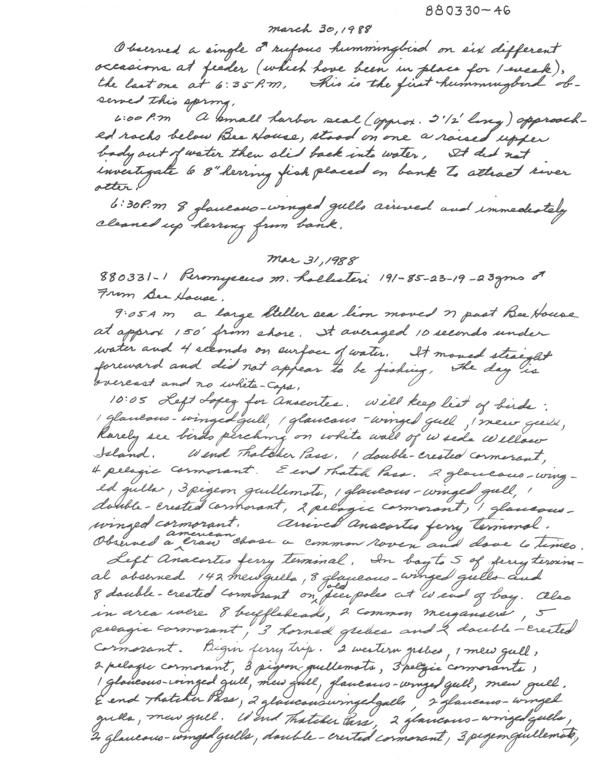 880330-46
march 30, 1988
Observed a single ♂ rufous hummingbird on six different
occasions at feeder (which have been in place for 1-week),
the last one at 6:35 P.M. This is the first hummingbird ob-
served this spring.
6:00 P.M A small harbor seal (approx. 2½' long) approach-
ed rocks below Bee House, stood on one a raised upper
body out of water then slid back into water. It did not
investigate 6 8" herring fish placed on bank to attract river
otter.
6:30 P.M 8 glaucous-winged gulls arrived and immediately
cleaned up herring from bank.
Mar 31, 1988
880331-1 Peromyscus m. hollisteri 191-85-23-19-23gms ♂
From Bee House.
9:05 AM a large Steller sea lion moved N past Bee House
at approx 150' from shore. It averaged 10 seconds under
water and 4 seconds on surface of water. It moved straight
foreward and did not appear to be fishing. The day is
overcast and no white-caps.
10:05 Left Lopez for Anacortes. Will keep list of birds:
1 glaucous-winged gull, 1 glaucous-winged gull, 1 mew gull,
Rarely see birds perching on white wall of W side Willow
Island. W end Thatcher Pass. 1 double-crested cormorant,
4 pelagic cormorant. E end Thatch Pass. 2 glaucous-wing-
ed gulls, 3 pigeon guillemots, 1 glaucous-winged gull, 1
double-crested cormorant, 2 pelagic cormorant, 1 glaucous-
winged cormorant. Arrived Anacortes ferry terminal.
Observed a american craw chase a common raven and dove 6 times.
Left Anacortes ferry terminal. In bay to S of ferry termin-
al observed 142 mew gulls, 8 glaucous-winged gulls and
8 double-crested cormorant on old poles at W end of bay. Also
in area were 8 buffleheads, 2 common mergansers, 5
pelagic cormorant, 3 horned grebes and 2 double-crested
cormorant. Bigin ferry trip. 2 western grebes, 1 mew gull,
2 pelagic cormorant, 3 pigeon guillemots, 3 pelagic cormorants,
1 glaucous-winged gull, mew gull, glaucous-winged gull, mew gull.
E end Thatcher Pass, 2 glaucous winged gulls, 2 glaucous-winged
gulls, mew gull. W end Thatcher Pass, 2 glaucous-winged gulls,
2 glaucous-winged gulls, double-crested cormorant, 3 pigeon guillemots,